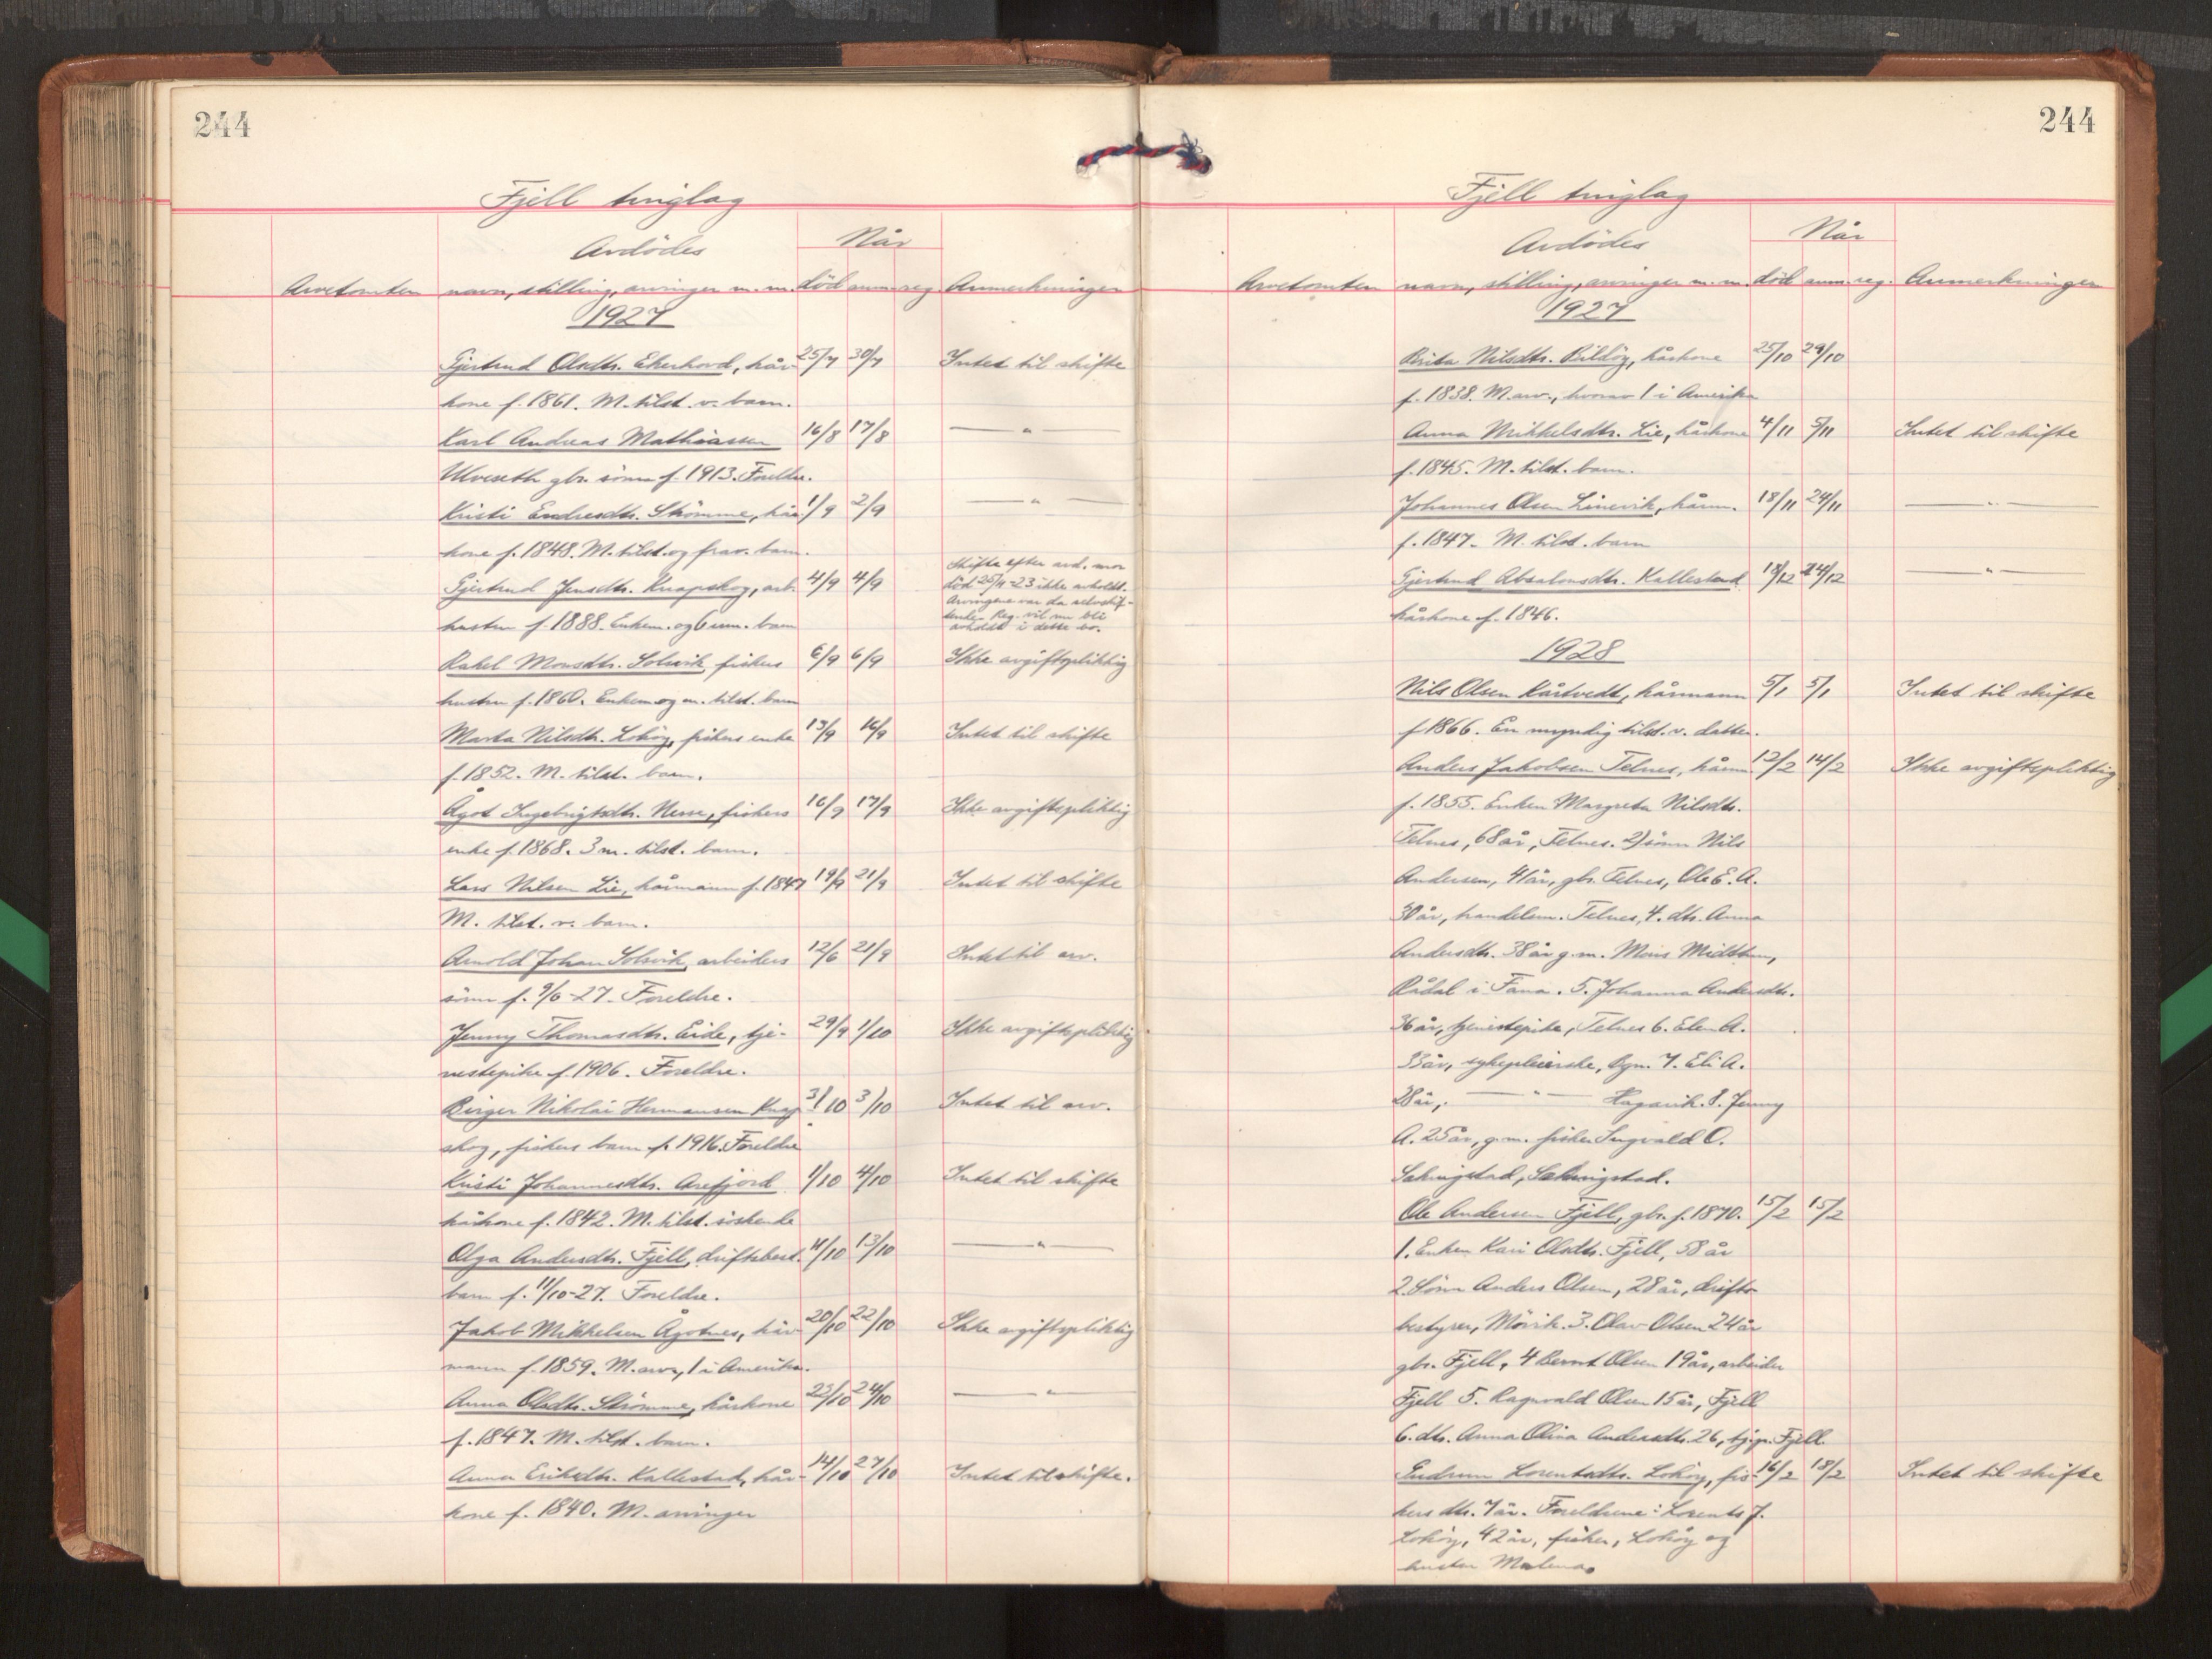 244
Fjell tinglag
Avdödes
Når
Arvetomten navn, stilling, arvinger m.m. död anm. reg. Anmerkninger
1927
Gjertrud Olsdtr. Ekerhovd, kår- 25/7 30/7 Intet til skifte
kone f. 1861. M. tilst. v. barn.
Karl Andreas Mathiassen 16/8 17/8 — " —
Ulveseth gbr. sönn f. 1913. Foreldre.
Kristi Endresdtr. Strömme, kår- 1/9 2/9 — " —
kone f. 1848. M. tilst. og frav. barn.
Gjertrud Jensdtr. Knapskog, arb. 4/9 4/9 Skifte efter avd. mor
död 25/4-23 ikke avholdt.
Arvingene var da selvskif-
tende. Reg. vil nu bli
avholdt i dette bo.
hustru f. 1888. Enkem. og 6 um. barn
Rakel Monsdtr. Solsvik, fiskers 6/9 6/9 Ikke avgiftspliktig
hustru f. 1860. Enkem og m. tilst. barn
Marta Nilsdtr. Lokøy, fiskers enke 13/9 16/9 Intet til skifte
f. 1852. M. tilst. barn.
Ågot Ingebrigtsdtr. Nesse, fiskers 16/9 17/9 Ikke avgiftspliktig
enke f. 1868. 3 m. tilst. barn.
Lars Nilsen Lie, kårmann f. 1847 19/9 21/9 Intet til skifte
M. tilst. v. barn.
Arnold Johan Solsvik, arbeiders 12/6 21/9 Intet til arv.
sönn f. 9/6-27. Foreldre.
Jenny Thomasdtr. Eide, tje- 29/9 1/10 Ikke avgiftspliktig
nestepike f. 1906. Foreldre.
Birger Nikolai Hermansen Knap- 3/10 3/10 Intet til arv.
skog, fiskers barn f. 1916. Foreldre
Kristi Johannesdtr. Arefjord 1/10 4/10 Intet til skifte
kårkone f. 1842. M. tilst. söskende
Olga Andersdtr. Fjell, driftsbest. 11/10 13/10 — " —
barn f. 11/10-27. Foreldre.
Jakob Mikkelsen Ågotnes, kår- 20/10 22/10 Ikke avgiftspliktig
mann f. 1859. M. arv., 1 i Amerika.
Anna Olsdtr. Strömme, kårkone 23/10 24/10 — " —
f. 1847. M. tilst. barn.
Anna Eriksdtr. Kallestad, kår- 14/10 27/10 Intet til skifte.
kone f. 1840. M. arvinger
244
Fjell tinglag
Avdödes
Når
Arvetomten navn, stilling, arvinger m.m. död anm. reg. Anmerkninger
1927
Brita Nilsdtr. Bildöy, kårkone 25/10 29/10
f. 1838. M. arv., hvorav 1 i Amerika
Anna Mikkelsdtr. Lie, kårkone 4/11 5/11 Intet til skifte
f. 1845. M. tilst. barn.
Johannes Olsen Linevik, kårm. 18/11 24/11 — " —
f. 1847. M. tilst. barn
Gjertrud Absalonsdtr. Kallestad 18/12 24/12 — " —
kårkone f. 1846.
1928
Nils Olsen Kårtvedt, kårmann 5/1 5/1 Intet til skifte
f. 1866. En myndig tilst. v. datter.
Anders Jakobsen Telnes, kårm. 12/2 14/2 Ikke avgiftspliktig
f. 1855. Enken Margreta Nilsdtr.
Telnes, 68 år, Telnes. 2) sönn Nils
Andersen, 41 år, gbr. Telnes, Ole E. A.
30 år, handelsm. Telnes, 4. dtr. Anna
Andersdtr. 38 år g.m. Mons Midttun,
Rådal i Fana. 5. Johanna Andersdtr.
36 år, tjenestepike, Telnes 6. Elen A.
33 år, sykepleierske, Bgn. 7. Eli A.
28 år, — " — Hagavik. 8. Jenny
A. 25 år, g.m. fisker Ingvald O.
Sekkingstad, Sekkingstad.
Ole Andersen Fjell, gbr. f. 1870. 15/2 15/2
1. Enken Kari Olsdtr. Fjell, 58 år
2. Sönn Anders Olsen, 28 år, drifts-
bestyrer, Mörvik. 3. Olav Olsen 24 år
gbr. Fjell, 4 Bernt Olsen 19 år, arbeider
Fjell 5. Ragnvald Olsen 15 år, Fjell
6. dtr. Anna Olina Andersdtr. 26, tj.p. Fjell.
Gudrun Lorentsdtr. Lokøy, fis- 16/2 18/2 Intet til skifte
kers dtr. 7 år. Foreldrene: Lorents J.
Lokøy, 42 år, fisker, Lokøy og
hustru Malena